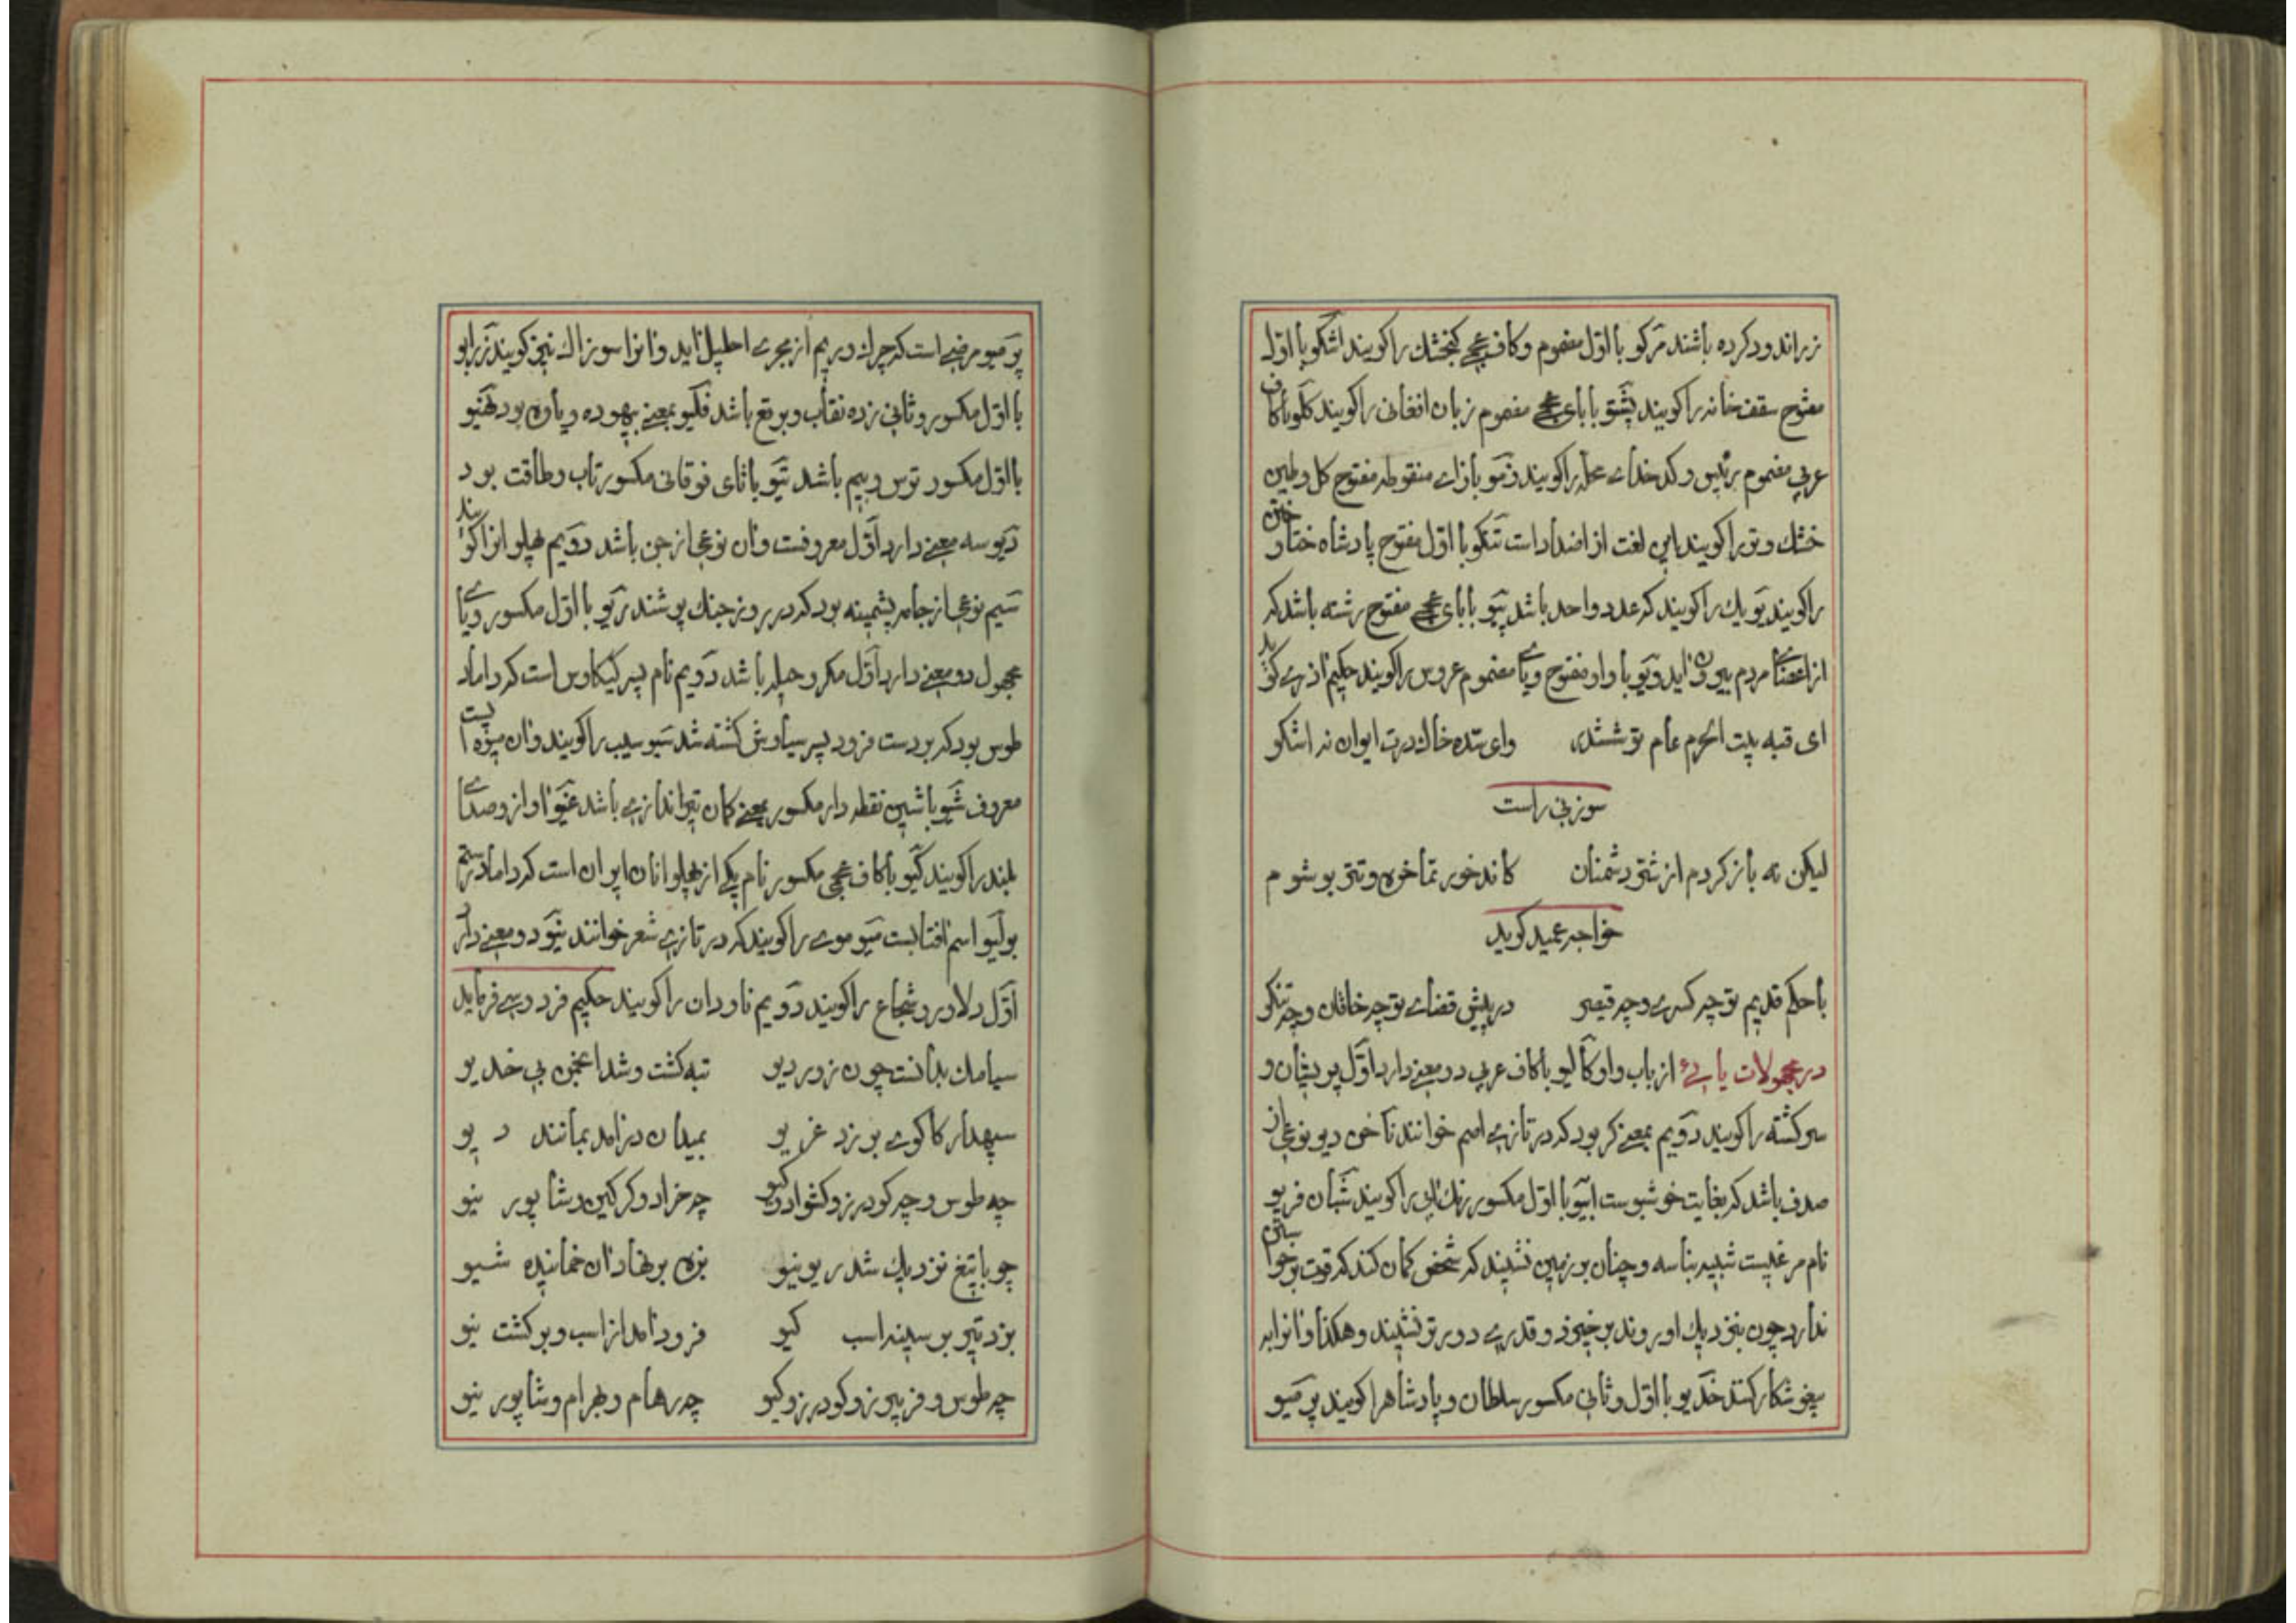 زراندود کرده باشند مرکو با اول مضموم و کاف عجمی کنجشک را کویند اشکو با اول
مفتوح سقف خانه را کویند پشتو با بای عجمی مضموم زبان افغانی را کویند کلو با کاف
عربی مضموم رئیس و کدخدای محله را کویند زمو با زای منقوطه مفتوح کل و طین
خشک و تر را کویند این لغت از اضداد است تنکو با اول مفتوح پادشاه ختا و ختن
را کویند یو یک را کویند که عدد واحد باشد پیو با بای عجمی مفتوح رشته باشد که
از اعضای مردم بیرون آید ویو با واو مفتوح و یای مضموم عروس را کویند حکیم آذری کوید
ای قبه بیت الحرم عام تو ششدر وای سده خاک درت ایوان نه اشکو
سوزنی راست
لیکن نه باز کردم از شتو دشمنان کاند خور تماخره و تتو بو شوم
خواجه عمید کوید
با حکم قدیم تو چه کسری و چه قیصر در پیش قضای تو چه خاقان و چه تنکو
در مجهولات یایی از باب واو کالیو با کاف عربی دو معنی دارد اول پریشان و
سرکشته را کویند دویم بمعنی کر بود که در تازی اصم خوانند ناخن دیو نوعی از
صدف باشد که بغایت خوشبوست ابیو با اول مکسور رنک آبی را کویند شبان فریو
نام مرغیست شبیه بباسه و چنان بر زمین نشیند که شخص کمان کند که قوت برخواستن
ندارد چون بنزدیک او روند برخیزد و قدری دورتر نشیند و هکذا و انرا به
پیغو شکار کنند خدیو با اول و ثانی مکسور سلطان و پادشاه را کویند پرمیو
پرمیو مرضی است که چرک و ریم از مجری احلیل آید و انرا سوزاک نیز کویند زرابو
با اول مکسور و ثانی زده نقاب و برقع باشد فلیو بمعنی بیهوده و یاوه بود نهیو
با اول مکسور ترس و بیم باشد تیو با تای فوقانی مکسور تاب و طاقت بود
دیو سه معنی دارد اول معروفست و ان نوعی از جن باشد دویم پهلوانرا کویند
سیم نوعی از جامه پشمینه بود که در روز جنک پوشند ریو با اول مکسور و یای
مجهول دو معنی دارد اول مکر و حیله باشد دویم نام پسر کیکاوس است که داماد
طوس بود که بر دست فرود پسر سیاوش کشته شد سیو سیب را کویند و ان میوه ایست
معروف شیو با شین نقطه دار مکسور بمعنی کمان تیراندازی باشد غیو اواز و صدای
بلند را کویند کیو با کاف عجمی مکسور نام یکی از پهلوانان ایران است که داماد رستم
بو لیو اسم افتابست میو موی را کویند که در تازی شعر خوانند نیو دو معنی دارد
اول دلاور و شجاع را کویند دویم ناودان را کویند حکیم فردوسی فرماید
سیامک بدانست چون زور دیو تبه کشت و شد انجمن بی خدیو
سپهدار کاکوی بر زد غریو بمیدان درامد بمانند دیو
چه طوس و چه کودرز و کشواد و کیو چه خراد و کرکین و شاپور نیو
چو با تیغ نزدیک شد ریونیو بزه بر نهاد ان خمانیده شیو
بزد تیر بر سینه اسب کیو فرود امد از اسب و بر کشت نیو
چه طوس و فریبرز و کودرز و کیو چه رهام و بهرام و شاپور نیو